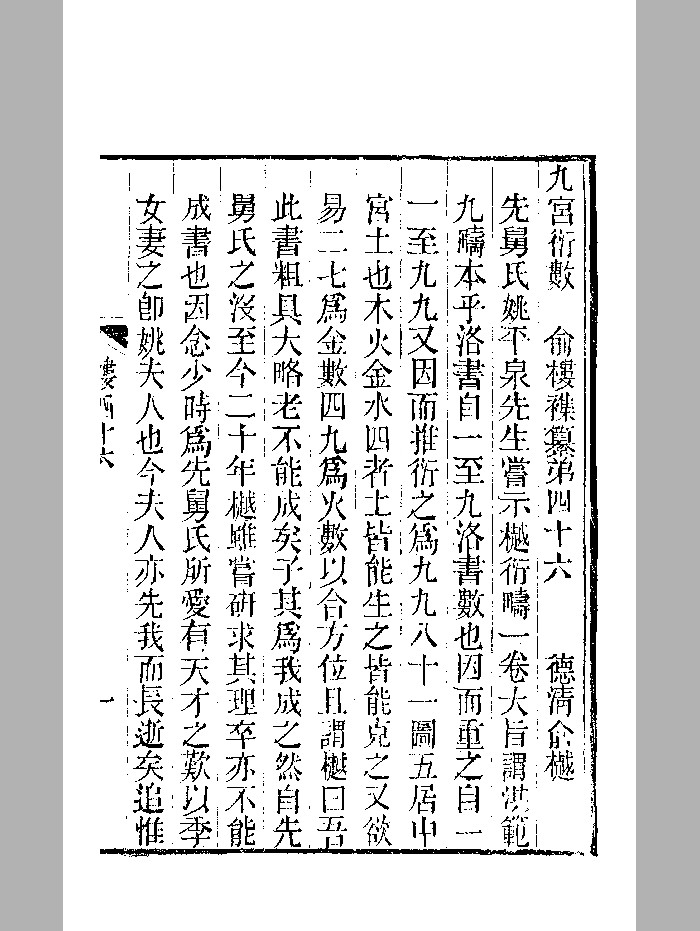 九宮衍數　俞樓襍纂弟四十六　德清俞樾
先舅氏姚平泉先生嘗示樾衍疇一卷大旨謂洪範
九疇本乎洛書自一至九洛書數也因而重之自一
一至九九又因而推衍之爲九九八十一圖五居中
宮土也木火金水四者土皆能生之皆能克之又欲
易二七爲金數四九爲火數以合方位且謂樾曰吾
此書粗具大略老不能成矣子其爲我成之然自先
舅氏之沒至今二十年樾雖嘗研求其理卒亦不能
成書也因念少時爲先舅氏所愛有天才之歎以季
女妻之卽姚夫人也今夫人亦先我而長逝矣追惟
樓四十六
一